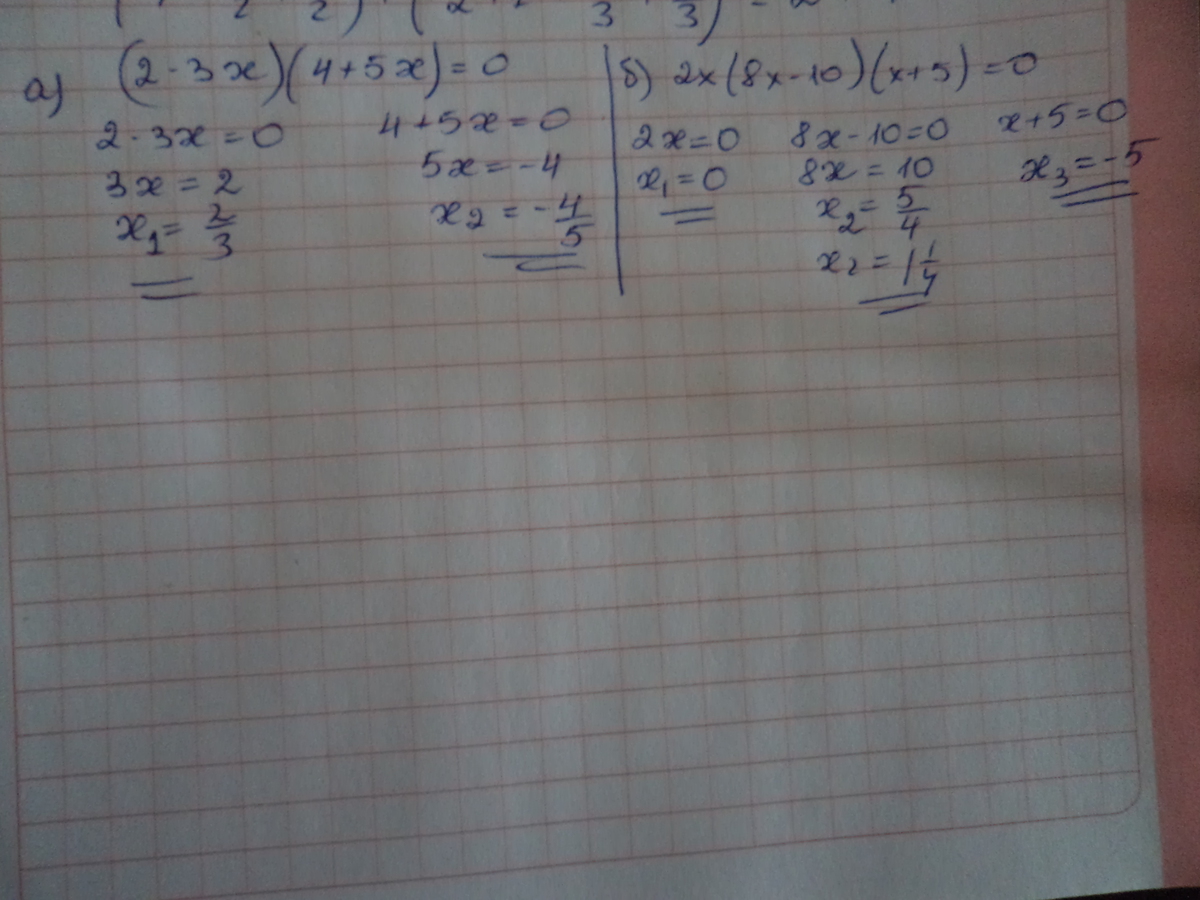 а) (2-3x)(4+5x)=0
2-3x=0
3x=2
x₁=2/3
4+5x=0
5x=-4
x₂=-4/5
б) 2x(8x-10)(x+5)=0
2x=0
x₁=0
8x-10=0
8x=10
x₂=5/4
x₂=1 1/4
x+5=0
x₃=-5